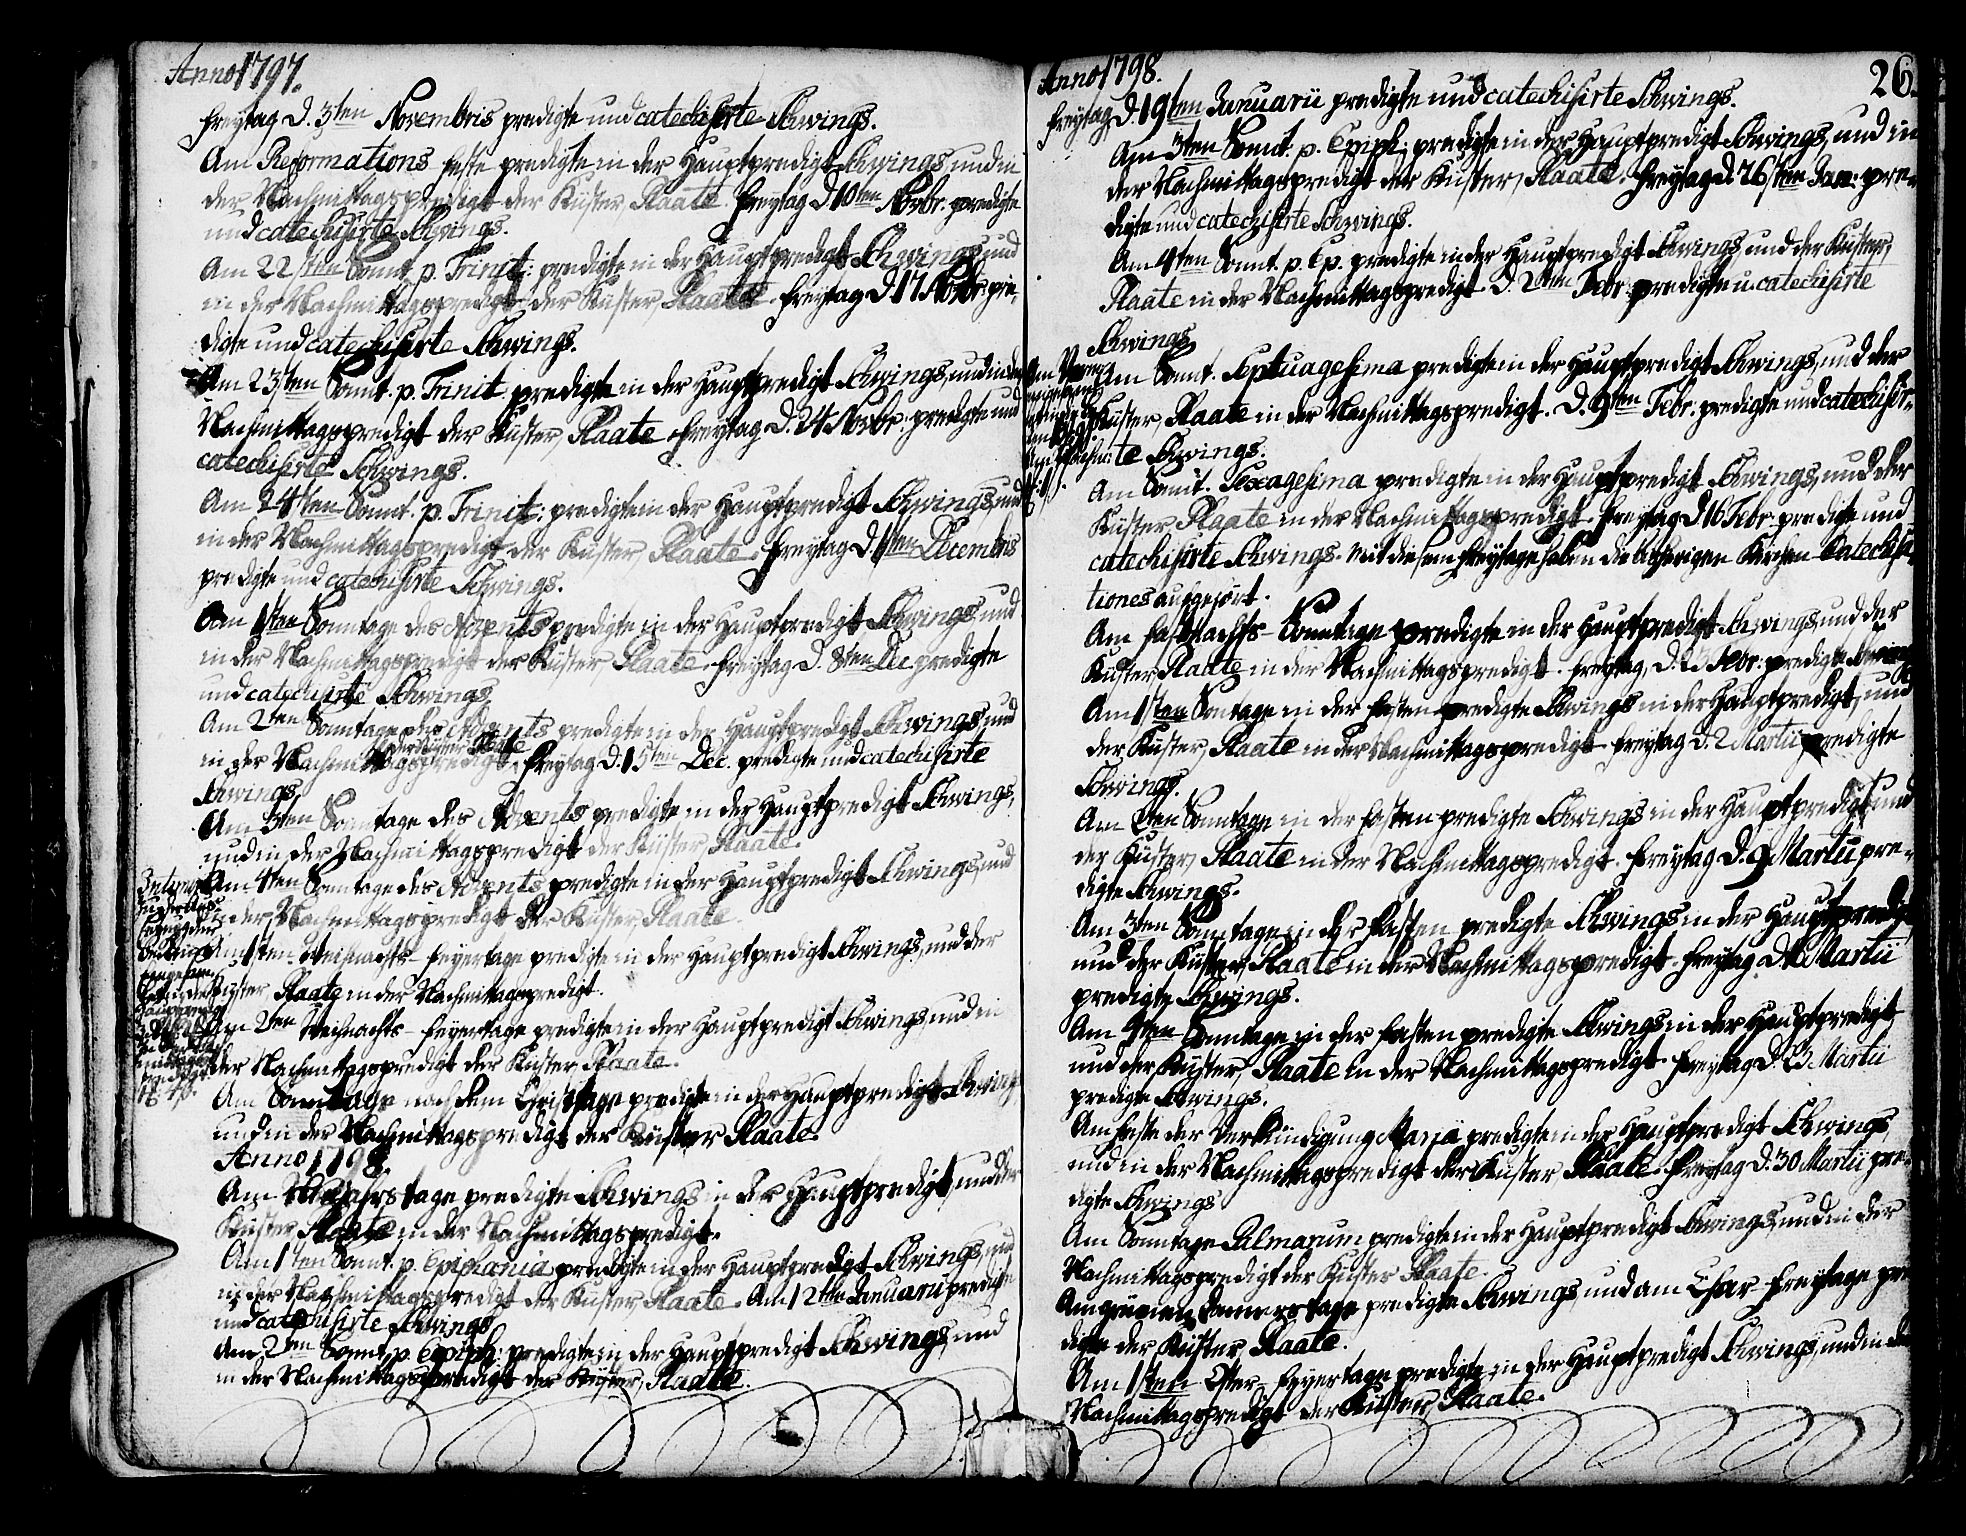 Anno 1797.
Freytag d. 3ten Novembris predigte und catechisirte Schwings.
Am Reformations Feste predigte in der Hauptpredigt Schwings, und in
der Nachmittagspredigt der Küster, Plaate. Freytag d. 10ten Novbr. predigte
und catechisirte Schwings.
Am 22sten Sonnt. p. Trinit: predigte in der Hauptpredigt Schwings, und
in der Nachmittagspredigt der Küster, Plaate. Freytag d. 17 Novbr. pre-
digte und catechisirte Schwings.
Am 23sten Sonnt. p. Trinit predigte in der Hauptpredigt Schwings, und in der
Nachmittagspredigt der Küster, Plaate. Freytag d. 24 Novbr: predigte und
catechisirte Schwings.
Am 24sten Sonnt. p. Trinit: predigte in der Hauptpredigt Schwings, und
in der Nachmittagspredigt der Küster, Plaate. Freytag d. 1sten Decembris
predigte und catechisirte Schwings.
Am 1sten Sonntage des Advents predigte in der Hauptpredigt Schwings, und
in der Nachmittagspredigt der Küster, Plaate. Freytag d. 8ten Dec. predigte
und catechisirte Schwings.
Am 2ten Sonntage des Advents predigte in der Hauptpredigt Schwings, und
der Küster Plaate
in der Nachmittagspredigt. Freytag d. 15ten Dec. predigte und catechisirte
Schwings.
Am 3ten Sonntage des Advents predigte in der Hauptpredigt Schwings,
und in der Nachmittagspredigt der Küster, Plaate.
Am 4ten Sonntage des Advents predigte in der Hauptpredigt Schwings, und
in der Nachmittagspredigt der Küster, Plaate.
Am 1sten Weihnachts-Feyertage predigte in der Hauptpredigt Schwings, und der
Küster Plaate in der Nachmittagspredigt.
Am 2ten Weihnachts-Feyertage predigte in der Hauptpredigt Schwings, und in
der Nachmittagspredigt der Küster Plaate.
Am Sonntage nach dem Christtage predigte in der Hauptpredigt Schwings
und in der Nachmittagspredigt der Küster Plaate.
Anno 1798
Am Neujahrstage predigte Schwings in der Hauptpredigt, und der
Küster Plaate in der Nachmittagspredigt.
Am 1sten Sonnt. p. Epiphania predigte in der Hauptpredigt Schwings, und
in der Nachmittagspredigt der Küster, Plaate. Am 12ten Januarii predigte
und catechisirte Schwings
Am 2ten Sonnt. p. Epiph: predigte in der Hauptpredigt Schwings, und
in der Nachmittagspredigt der Küster, Plaate.
Anno 1798.
26.
Freytag d. 19ten Januarii predigte und catechisirte Schwings.
Am 3ten Sonnt. p. Epiph: predigte in der Hauptpredigt Schwings, und in
der Nachmittagspredigt der Küster, Plaate. Freytag d. 26sten Jan: pre-
digte und catechisirte Schwings.
Am 4ten Sonnt. p. Ep. predigte in der Hauptpredigt Schwings, und der Küster,
Plaate in der Nachmittagspredigt. D. 2ten Febr: predigte u. catechisirte
Schwings
Am Sonnt. Septuagesima predigte in der Hauptpredigt Schwings, und der
Küster, Plaate in der Nachmittagspredigt. D. 9ten Febr: predigte und catechisir-
te Schwings.
Am Sonnt. Sexagesima predigte in der Hauptpredigt Schwings, und der
Küster Plaate in der Nachmittagspredigt. Freytag d. 16 Febr. predigte und
catechisirte Schwings. Mit diesem Freytage haben die bisherigen Kirchen Catechisa-
tiones aufgehört.
Am Fastnachts-Sonntage predigte in der Hauptpredigt Schwings, und der
Küster, Plaate in der Nachmittagspredigt. Freytag, d. 23 Febr: predigte Schwings
Am 1sten Sontage in der Fasten predigte Schwings in der Hauptpredigt, und
der Küster, Plaate in der Nachmittagspredigt. Freytag d. 2 Martii predigte
Schwings.
Am 2ten Sonntage in der Fasten predigte Schwings in der Hauptpredigt, und
der Küster, Plaate in der Nachmittagspredigt. Freytag d. 9 Martii pre-
digte Schwings.
Am 3ten Sonntage in der Fasten predigte Schwings in der Hauptpredigt
und der Küster, Plaate in der Nachmittagspredigt. Freytag d. Martii
predigte Schwings.
Am 4ten Sonntage in der Fasten predigte Schwings in der Hauptpredigt
und der Küster, Plaate in der Nachmittagspredigt. Freytag d. 23 Martii
predigte Schwings.
Am Feste der Verkündigung Mariä predigte in der Hauptpredigt Schwings,
und in der Nachmittagspredigt der Küster Plaate. Freytag d. 30 Martii pre-
digte Schwings
Am Sonntage Palmarum predigte in der Hauptpredigt Schwings, und in der
Nachmittagspredigt der Küster Plaate.
Am grünen Donnerstage predigte Schwings, und am Char-Freytage pre-
digte der Küster Plaate.
Am 1sten Oster-Feyertage predigte in der Hauptpredigt Schwings, und in der
Nachmittagspredigt der Küster Plaate.